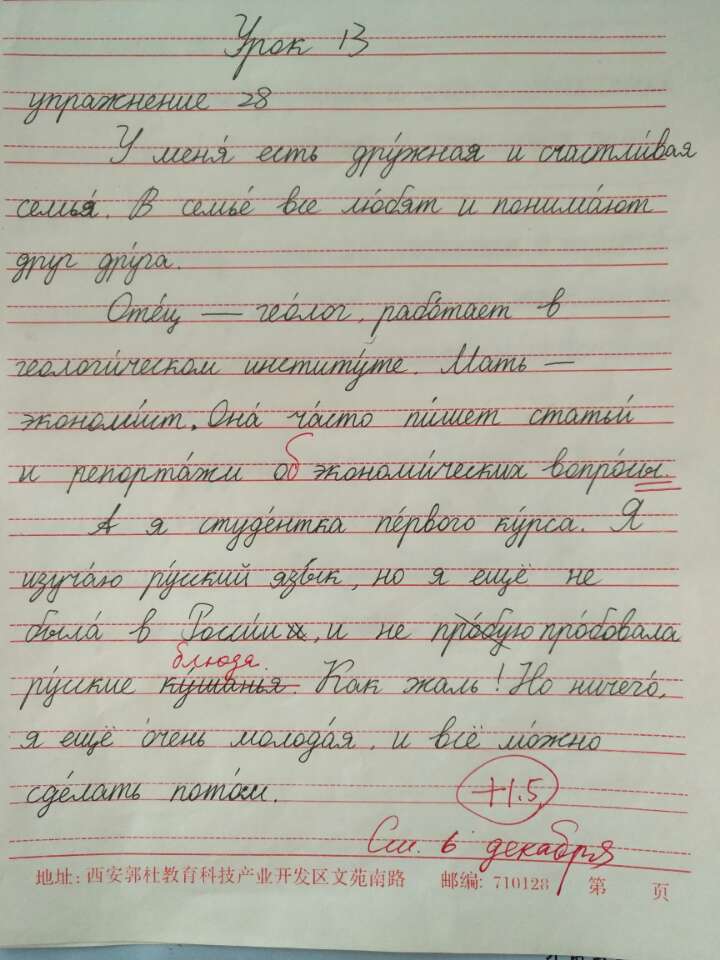 Урок 13
упражнение 28
У меня́ есть дру́жная и счастли́вая
семья́. В семье́ все лю́бят и понима́ют
друг дру́га.
Оте́ц — гео́лог, рабо́тает в
геологи́ческом институ́те. Мать —
экономи́ст. Она́ ча́сто пи́шет статьи́
и репорта́жи об экономи́ческих вопро́сы.
А я студе́нтка пе́рвого ку́рса. Я
изуча́ю ру́сский язы́к, но я ещё не
была́ в Росси́и, и не про́бую про́бовала
блюда.
ру́сские ку́шанья. Как жаль! Но ничего́,
я ещё о́чень молода́я, и всё мо́жно
сде́лать пото́м.
+1.5
См. 6 декабря
地址: 西安郭杜教育科技产业开发区文苑南路 邮编: 710128 第 页